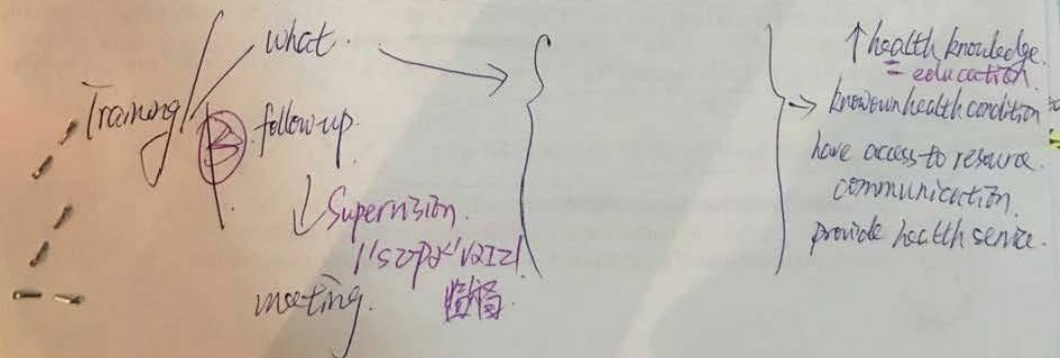 what.
Training
B follow-up.
↓ Supervision.
监督.
meeting.
↑ health knowledge.
= education
know own health condition
have access to resource.
communication.
provide health service.